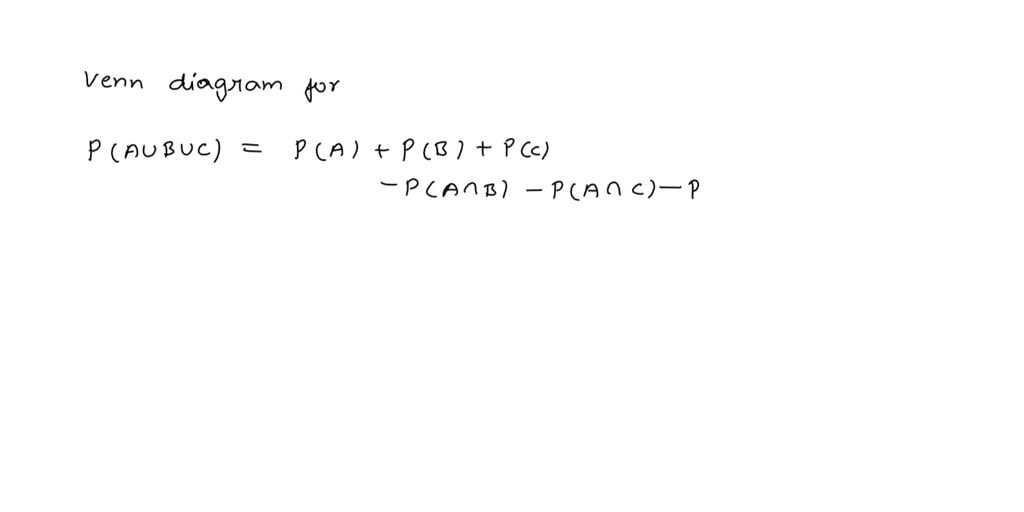 Venn diagram for
P(A∪B∪C) = P(A) + P(B) + P(C)
-P(A∩B) - P(A∩C) - P